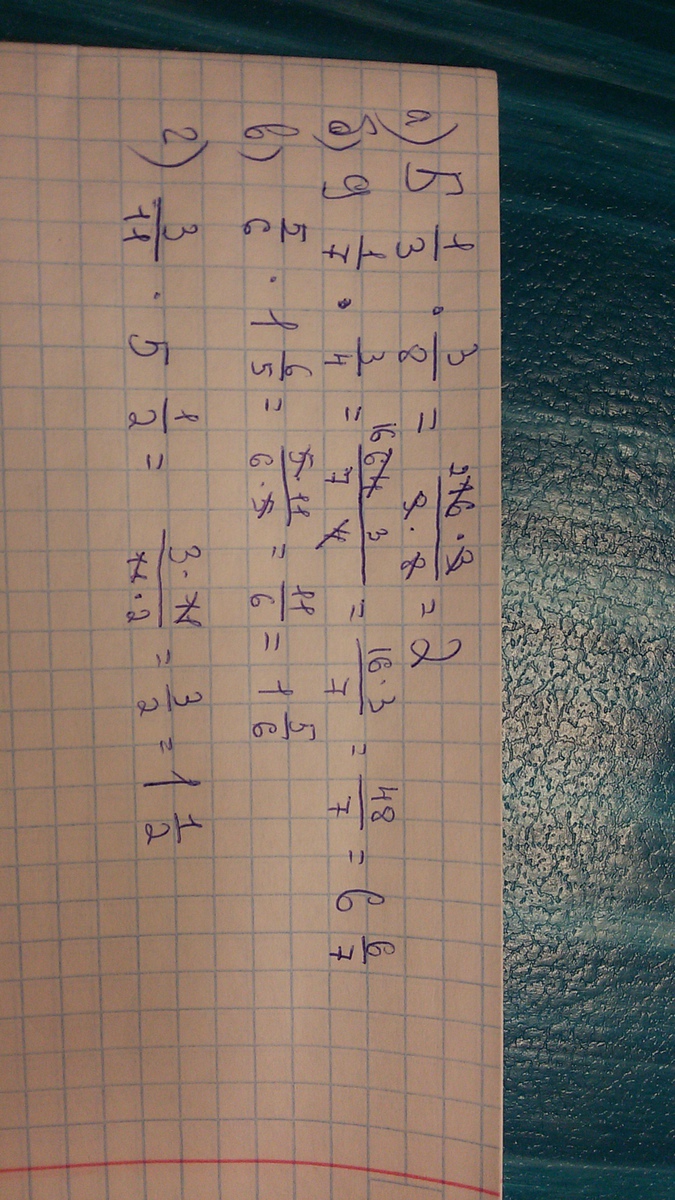 а) 5 1/3 · 3/8 = 2 16 · 3 / 3 · 8 = 2
б) 9 1/7 · 3/4 = 16 64 3 / 7 4 = 16 · 3 / 7 = 48/7 = 6 6/7
в) 5/6 · 1 6/5 = 5 · 11 / 6 · 5 = 11/6 = 1 5/6
г) 3/11 · 5 1/2 = 3 · 11 / 11 · 2 = 3/2 = 1 1/2